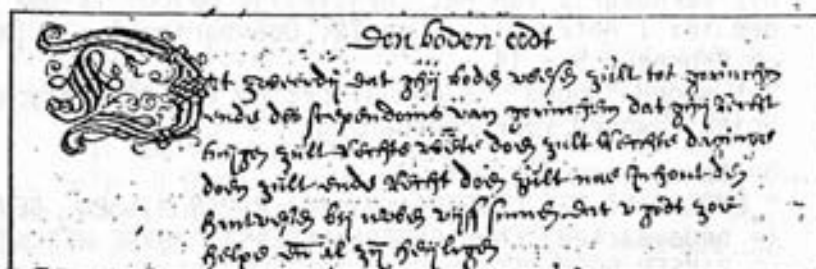 Den boden eedt
Dat zweerdij dat ghij bode wesen zult tot gorinchem
ende des scependoms van gorinchem dat ghij recht
zult rechte doen zult rechte daginge
doen zult ende recht doen zult nae Inhout den
bij uwen vijff sinnen dat v godt zoe
helpe en al zijn heijligen